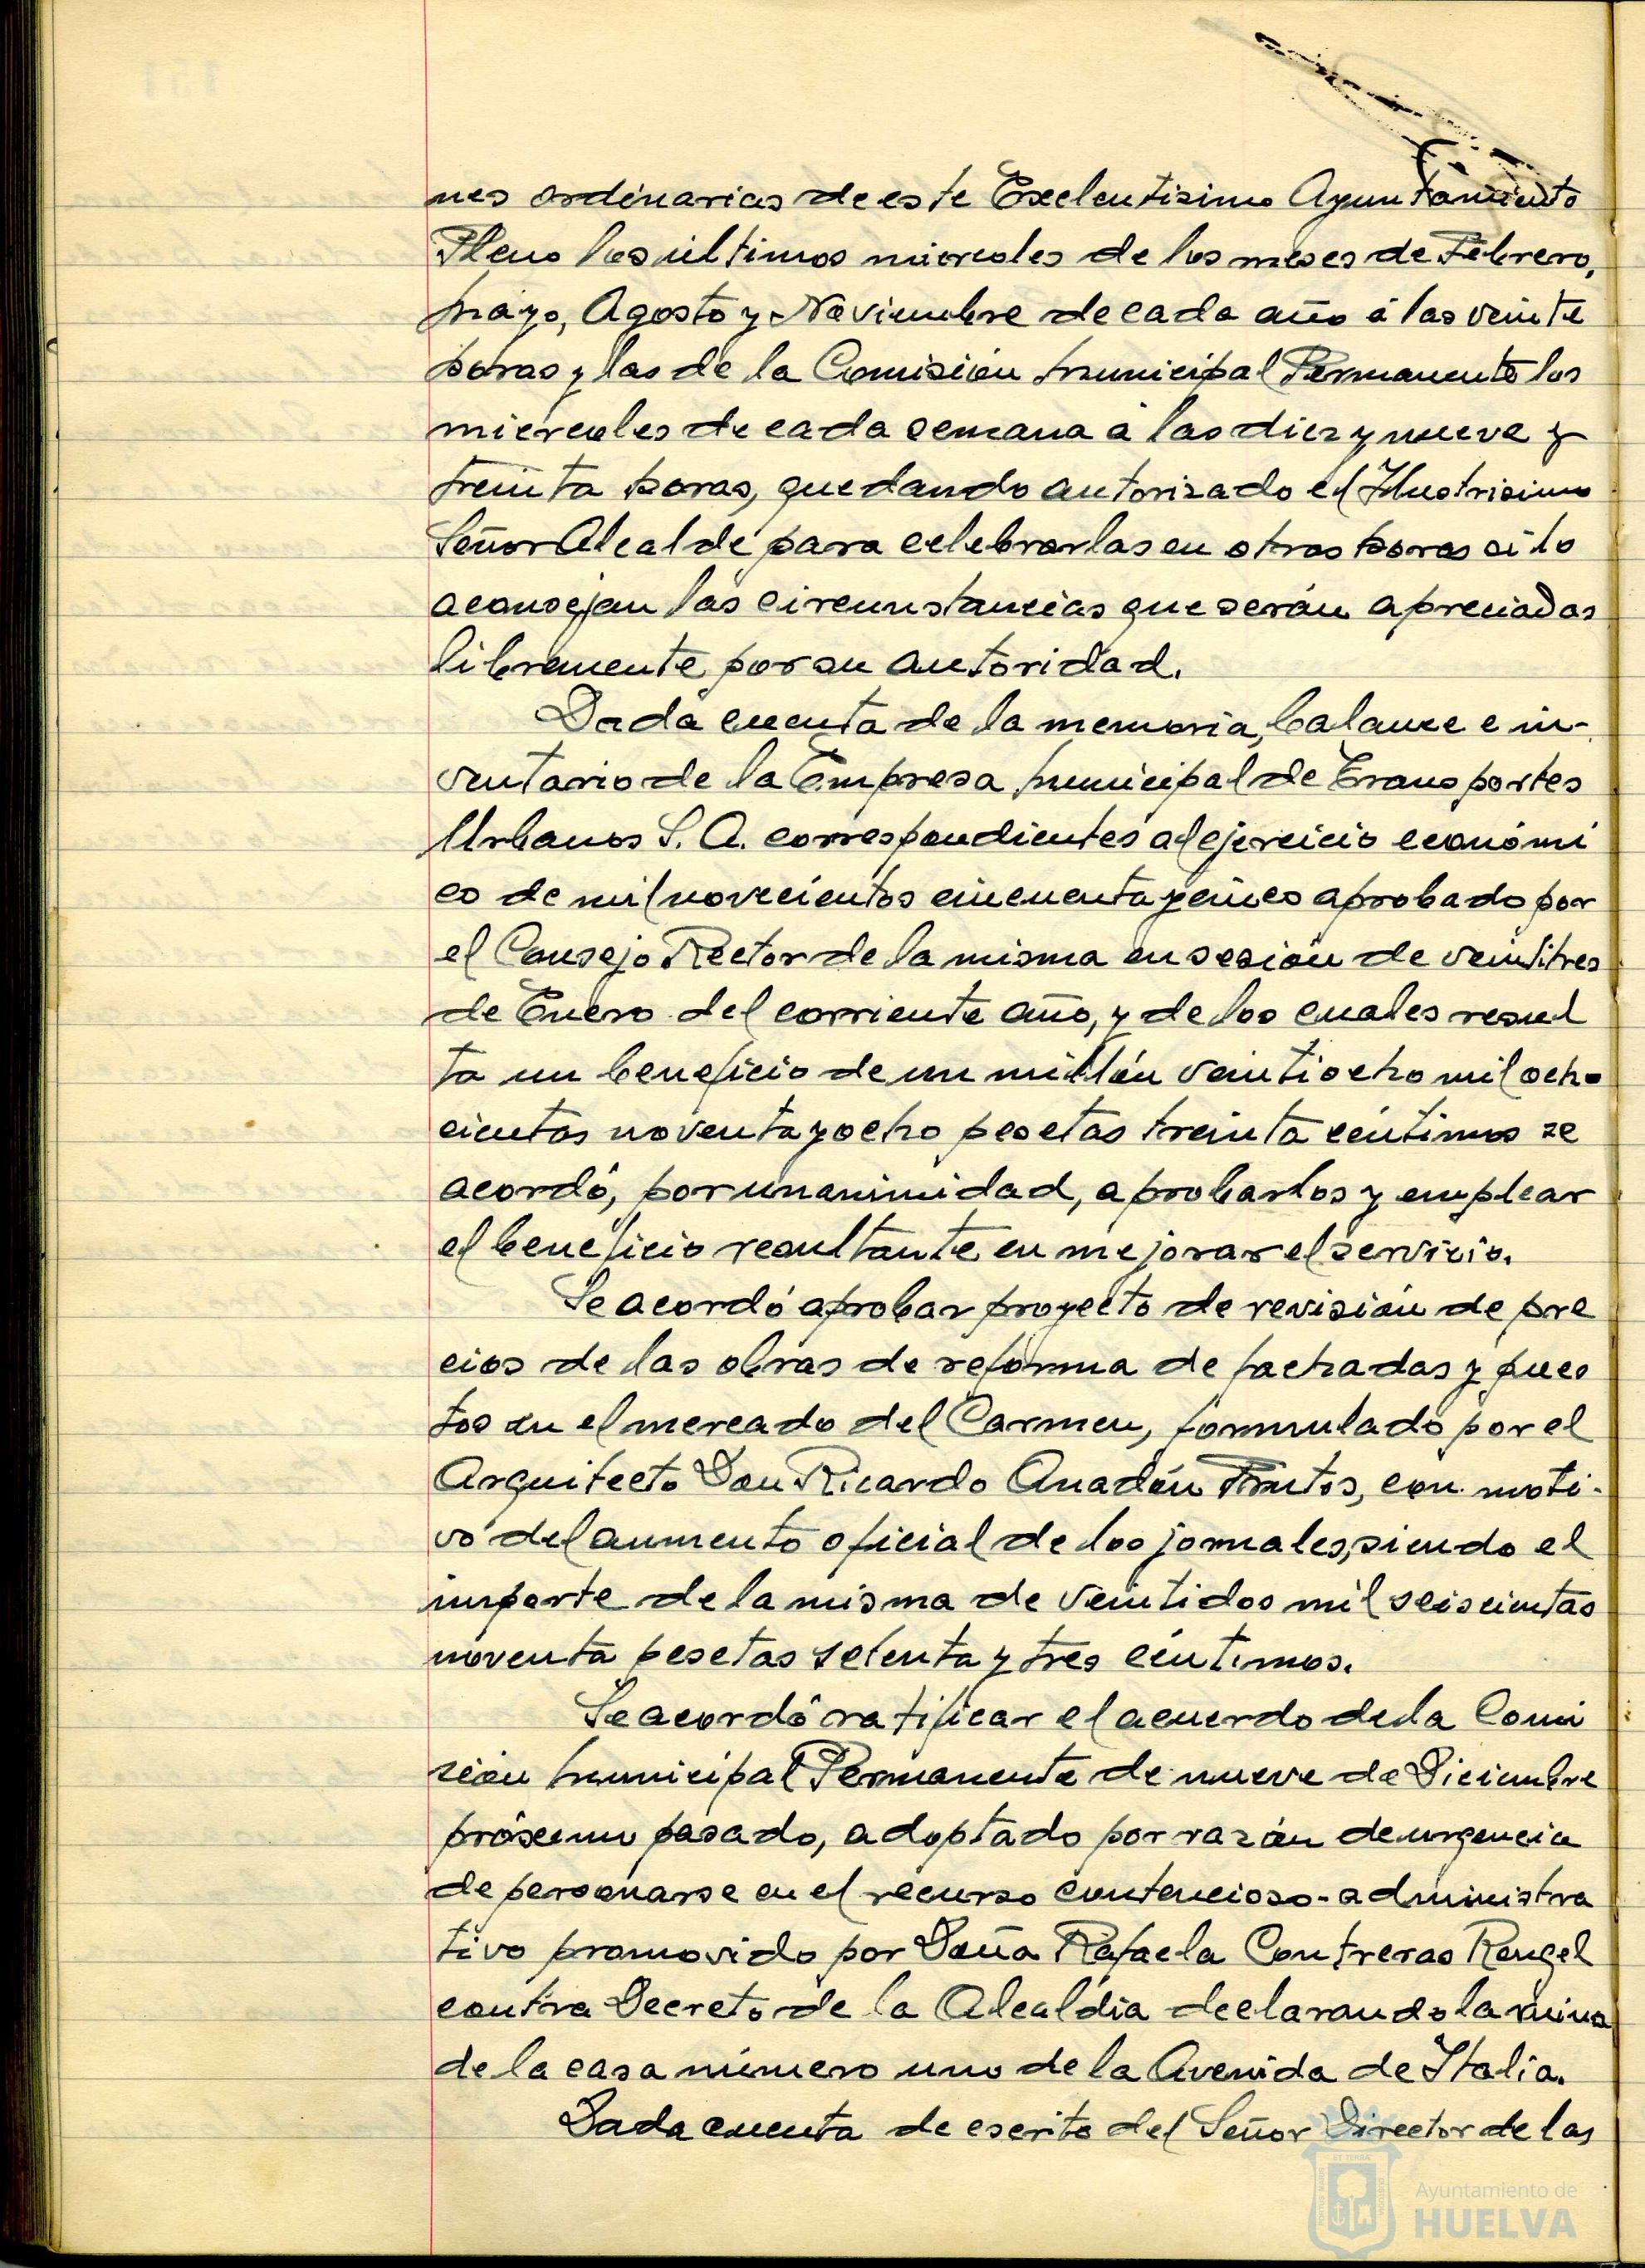 nes ordinarias de este Excelentisimo Ayuntamiento
Pleno los últimos miercoles de los meses de Febrero,
Mayo, Agosto y Noviembre de cada año a las veinte
horas y las de la Comisión Municipal Permanente los
miercoles de cada semana a las diez y nueve y
treinta horas, quedando autorizado el Ilustrisimo
Señor Alcalde para celebrarlas en otras horas si lo
aconsejan las circunstancias que serán apreciadas
libremente por su autoridad.
Dada cuenta de la memoria, balance e in-
ventario de la Empresa Municipal de Transportes
Urbanos S. A. correspondientes al ejercicio económi
co de mil novecientos cincuenta y cinco aprobado por
el Consejo Rector de la misma en sesión de veintitres
de Enero del corriente año, y de los cuales resul
ta un beneficio de un millón veintiocho mil ocho
cientas noventa y ocho pesetas treinta céntimos se
acordó, por unanimidad, aprobarlos y emplear
el beneficio resultante en mejorar el servicio.
Se acordó aprobar proyecto de revisión de pre
cios de las obras de reforma de fachadas y pues
tos en el mercado del Carmen, formulado por el
Arquitecto Don Ricardo Anadón Frutos, con moti-
vo del aumento oficial de los jornales, siendo el
importe de la misma de veintidos mil seiscientas
noventa pesetas setenta y tres céntimos.
Se acordó ratificar el acuerdo de la Comi
sión Municipal Permanente de nueve de Diciembre
próximo pasado, adoptado por razón de urgencia
de personarse en el recurso contencioso-administra
tivo promovido por Doña Rafaela Contreras Rengel
contra Decreto de la Alcaldia declarando la ruina
de la casa número uno de la Avenida de Italia.
Dada cuenta de escrito del Señor Director de las
Ayuntamiento de
HUELVA